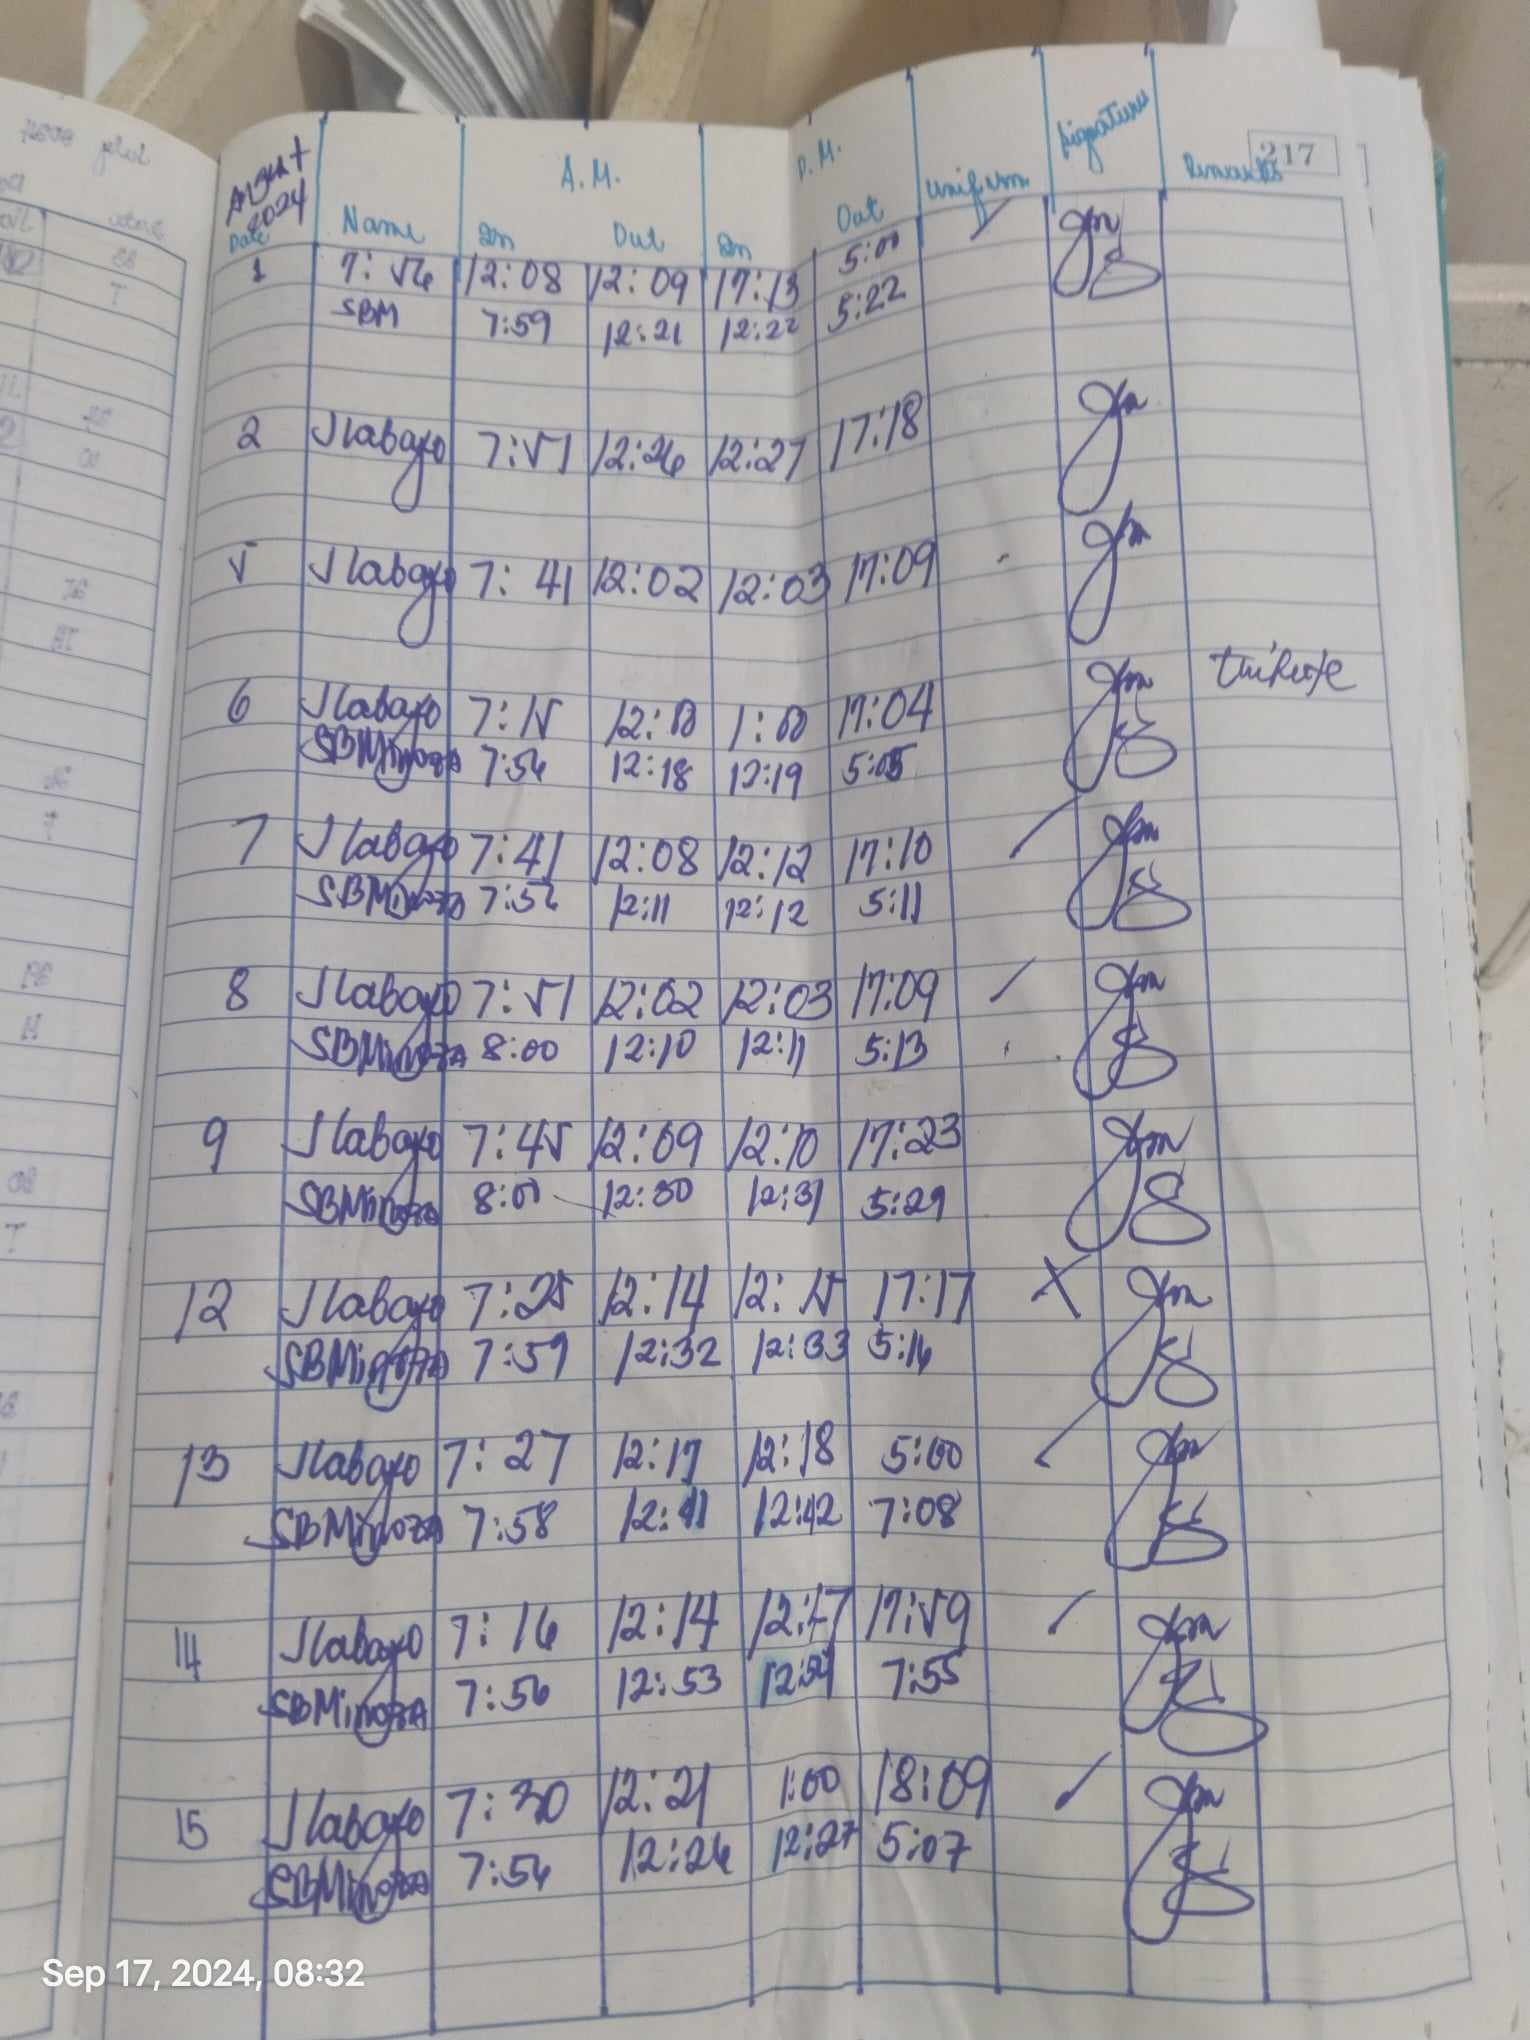 217
August 2024
A.M. P.M.
Date Name In Out In Out Uniform Signature Remarks
1 7:56 12:08 12:09 17:13 5:00
SBM 7:59 12:21 12:22 5:22
2 Jlabayo 7:51 12:26 12:27 17:18
5 Jlabayo 7:41 12:02 12:03 17:09
6 Jlabayo 7:15 12:00 1:00 17:04
SBMinoza 7:56 12:18 12:19 5:05
7 Jlabayo 7:41 12:08 12:12 17:10
SBMinoza 12:11 12:12 5:11
8 Jlabayo 7:51 12:02 12:03 17:09
SBMinoza 8:00 12:10 12:11 5:13
9 Jlabayo 7:45 12:09 12:10 17:23
SBMinoza 8:00 12:30 12:31 5:29
12 Jlabayo 7:25 12:14 12:15 17:17
SBMinoza 7:59 12:32 12:33 5:16
13 Jlabayo 7:27 12:17 12:18 5:00
SBMinoza 7:58 12:41 12:42 7:08
14 Jlabayo 7:16 12:14 17:59
SBMinoza 7:56 12:53 12:54 7:55
15 Jlabayo 7:30 12:21 1:00 18:09
SBMinoza 7:56 12:26 12:27 5:07
Sep 17, 2024, 08:32